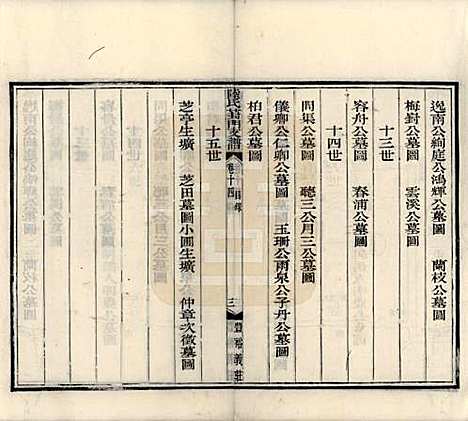 逸南公絢庭公鴻輝公墓圖　蘭枝公墓圖
梅對公墓圖　雲溪公墓圖
十三世
容舟公墓圖　春浦公墓圖
十四世
問渠公墓圖　聽三公月三公墓圖
儀卿公仁卿公墓圖　玉珊公雨泉公子丹公墓圖
柏君公墓圖
陸氏葑門支譜　卷十四　目錄　三　豐裕義莊
十五世
芝亭生壙　芝田墓圖小圃生壙　仲章次微墓圖